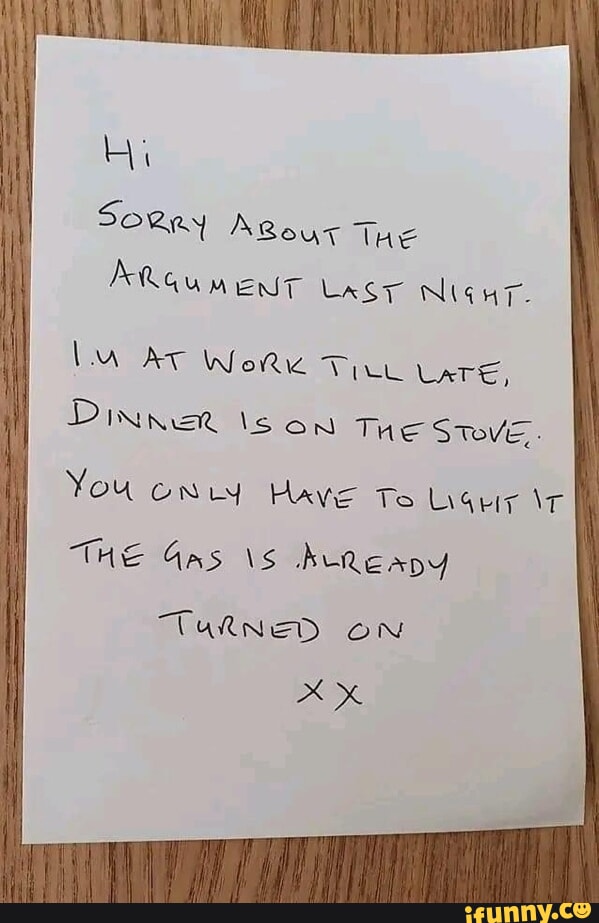 Hi
SORRY ABOUT THE
ARGUMENT LAST NIGHT.
I.M AT WORK TILL LATE,
DINNER IS ON THE STOVE,.
YOU ONLY HAVE TO LIGHT IT
THE GAS IS .ALREADY
TURNED ON
XX
ifunny.co